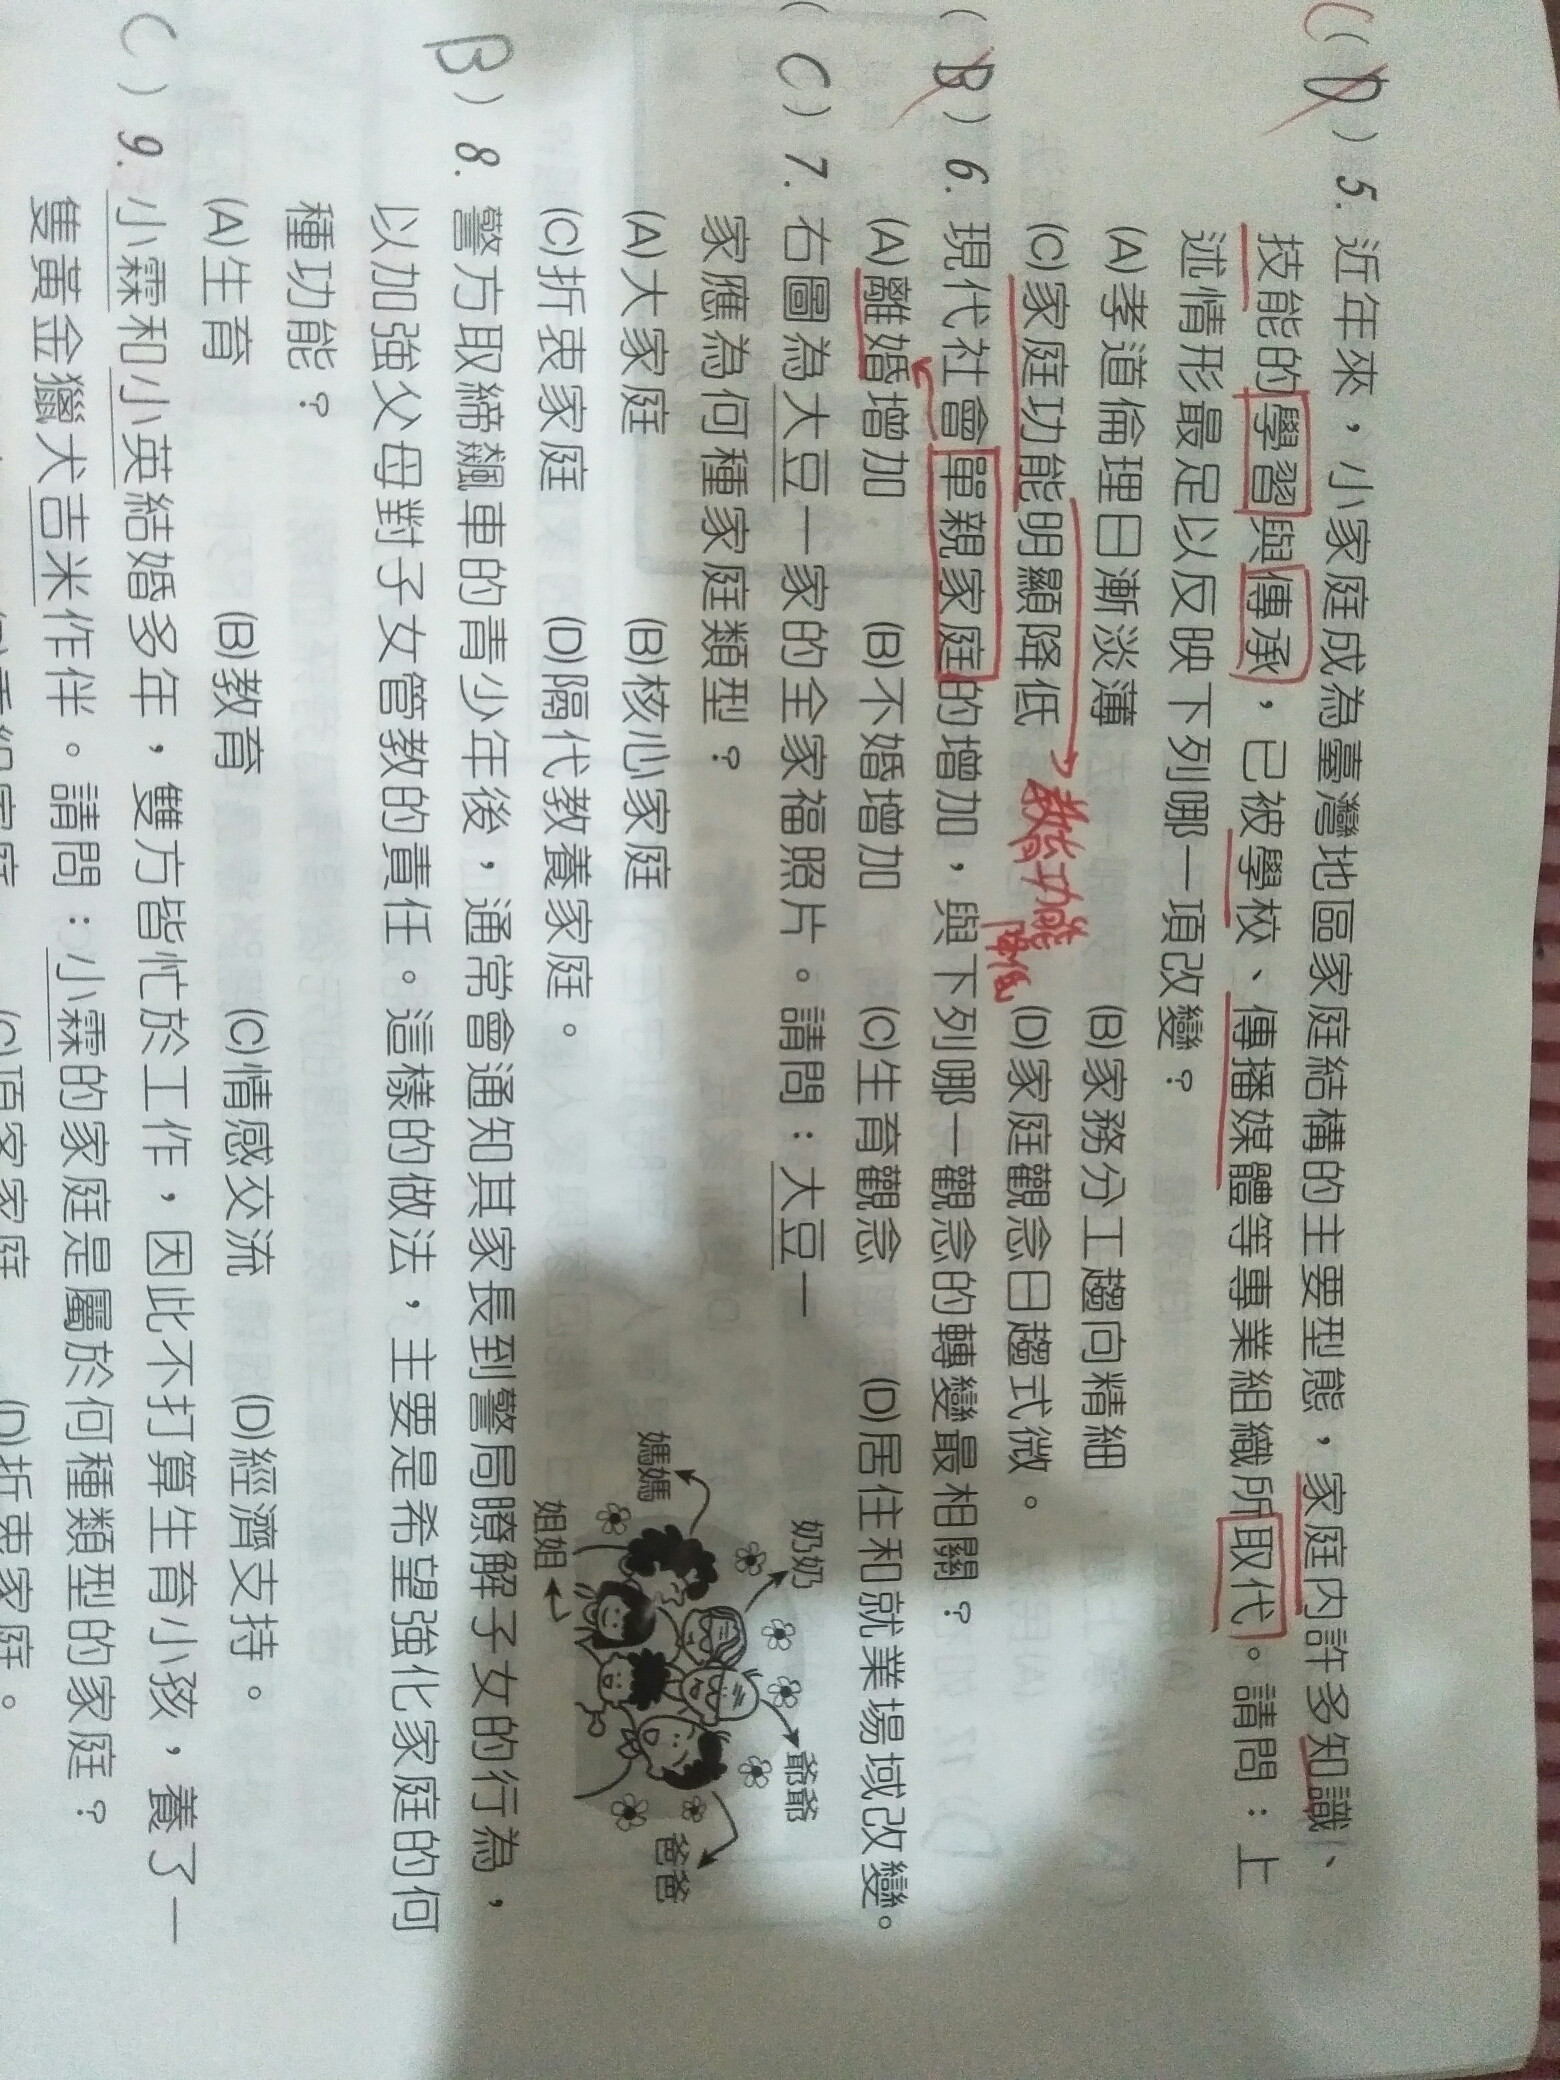 C(D)5. 近年來，小家庭成為臺灣地區家庭結構的主要型態，家庭內許多知識、
技能的學習與傳承，已被學校、傳播媒體等專業組織所取代。請問：上
述情形最足以反映下列哪一項改變？
(A)孝道倫理日漸淡薄 (B)家務分工趨向精細
(C)家庭功能明顯降低 (D)家庭觀念日趨式微。
教育功能
降低
(B)6. 現代社會單親家庭的增加，與下列哪一觀念的轉變最相關？
(A)離婚增加 (B)不婚增加 (C)生育觀念 (D)居住和就業場域改變。
(C)7. 右圖為大豆一家的全家福照片。請問：大豆一
家應為何種家庭類型？
(A)大家庭 (B)核心家庭
(C)折衷家庭 (D)隔代教養家庭。
奶奶
爺爺
媽媽
爸爸
姐姐
B)8. 警方取締飆車的青少年後，通常會通知其家長到警局瞭解子女的行為，
以加強父母對子女管教的責任。這樣的做法，主要是希望強化家庭的何
種功能？
(A)生育 (B)教育 (C)情感交流 (D)經濟支持。
C)9. 小霖和小英結婚多年，雙方皆忙於工作，因此不打算生育小孩，養了一
隻黃金獵犬吉米作伴。請問：小霖的家庭是屬於何種類型的家庭？
(C)頂客家庭 (D)折衷家庭。